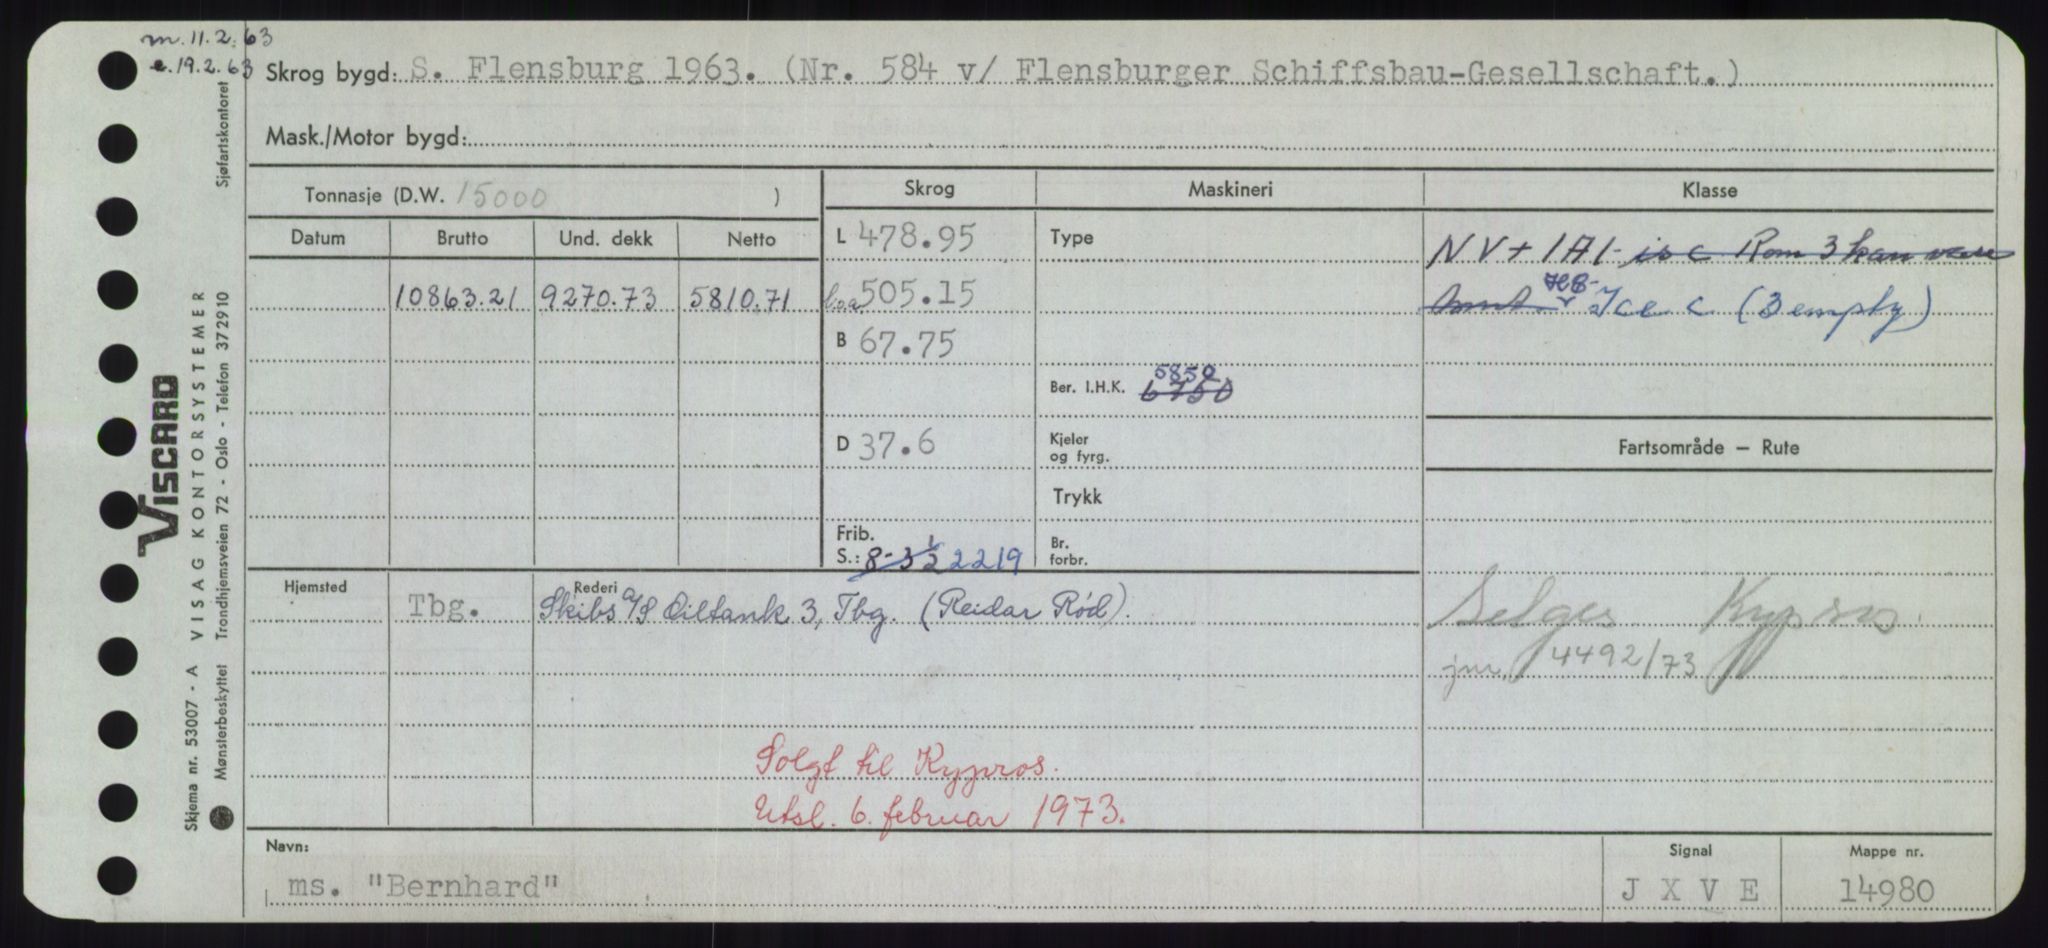 m. 11.2.63
e. 19.2.63
Skrog bygd: S. Flensburg 1963. (Nr. 584 v/ Flensburger Schiffsbau-Gesellschaft.)
Mask./Motor bygd:
Tonnasje (D.W. 15000 )
Datum Brutto Und. dekk Netto
10863.21 9270.73 5810.71
Skrog
L 478.95
l.o.a 505.15
B 67.75
D 37.6
Frib.
S.: 8-3½ 2219
Maskineri
Type
5850
Ber. I.H.K. 6750
Kjeler
og fyrg.
Trykk
Br.
forbr.
Klasse
NV+ 1A1- is c Rom 3 kan være
tomt HC- Ice C (3 empty)
Fartsområde — Rute
Selges Kypros.
jnr. 4492/73
Hjemsted Rederi
Tbg. Skibs A/S Oiltank 3, Tbg. (Reidar Rød).
Solgt til Kypros.
Utsl. 6. februar 1973.
Navn: Signal Mappe nr.
ms. "Bernhard" J X V E 14980
VISCARD
VISAG KONTORSYSTEMER
Skjema nr. 53007 - A
Mønsterbeskyttet Trondhjemsveien 72 - Oslo - Telefon 372910 Sjøfartskontoret